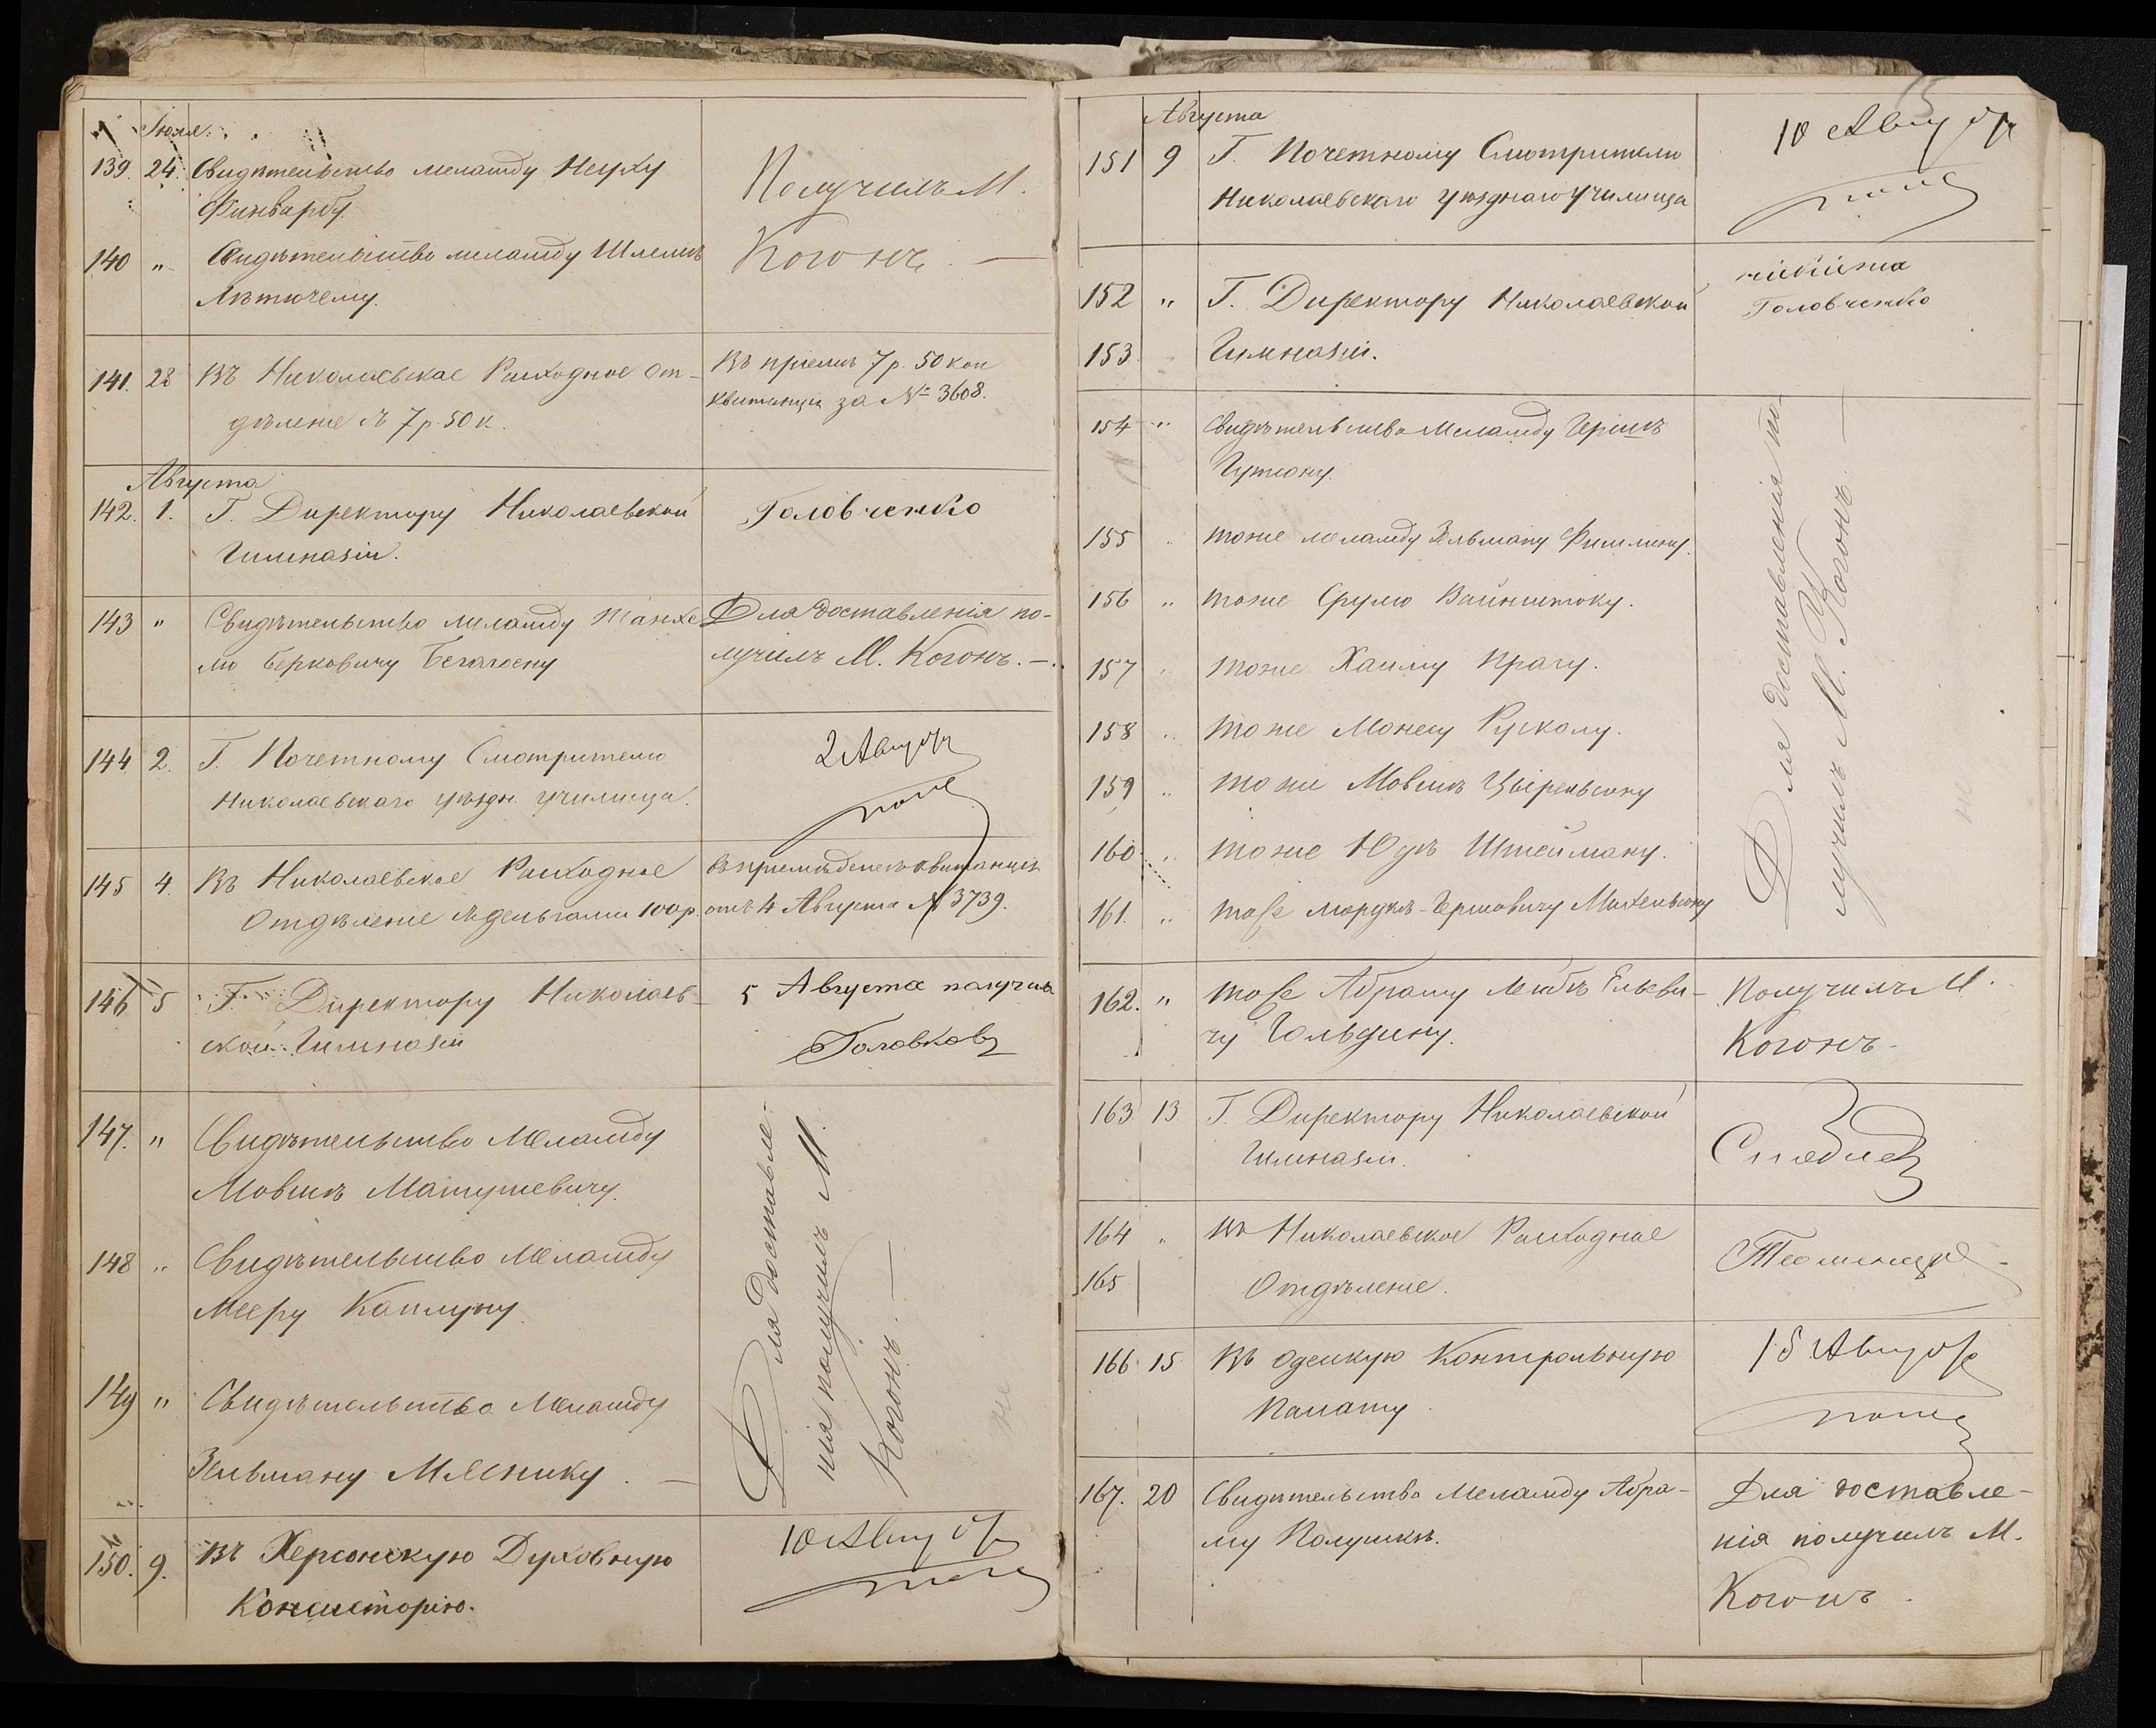 Іюля.
139. 24. Свидѣтельство меламду Неуху
Финварбу
Получилъ М.
140 " Свидѣтельство меламду Шлемѣ
Лѣтичему.
Когонъ. —
141. 28 Въ Николаевское Расходное От-
дѣленіе съ 7 р. 50 к.
Въ пріемѣ 7 р. 50 коп
квитанція за № 3608.
Августа
142. 1. Г. Директору Николаевской
Гимназіи.
Головченко
143 " Свидѣтельство меламду Танхе
лю Берковичу
Для доставленія по-
лучилъ М. Когонъ. —
144 2. Г. Почетному Смотрителю
Николаевскаго уѣздн. училища.
2 Августа
почта
145 4. Въ Николаевское Расходное
Отдѣленіе съ деньгами 100 р.
Въ пріемѣ денегъ квитанція
отъ 4 Августа № 3739.
146 5 Г. Директору Николаев-
ской Гимназіи
5 Августа получилъ
147. " Свидѣтельство Меламду
Мовшѣ Матушевичу.
148 " Свидѣтельство Меламду
Мееру Каплуну.
149 " Свидѣтельство Меламду
Зельману Мленику. —
Для доставле-
нія получилъ М.
Когонъ. —
150. 9. Въ Херсонскую Духовную
Консисторію.
10 Августа
почта
15
Августа
151 9 Г. Почетному Смотрителю
Николаевскаго уѣзднаго Училища
10 Августа
почта
152 " Г. Директору Николаевской
153 Гимназіи.
Головченко
154 " Свидѣтельство Меламду Гершкѣ
Гутману.
155 " тоже меламду Зельману Фишману.
156 " тоже Срулю Вайнштоку.
157 " тоже Хаиму Прагу.
158 " тоже Монесу Русколу.
159 " тоже Мовшѣ Цырельсону
160 " тоже Юдѣ Штейману.
161. " тоже Мордкѣ-Гершовичу Михельсону
Для доставленія по-
лучилъ М. Когонъ. —
162. " тоже Абраму Лейбѣ Ельеви-
чу Гольдину.
Получилъ М.
Когонъ.
163 13 Г. Директору Николаевской
Гимназіи.
164 " Въ Николаевское Расходное
165 Отдѣленіе.
166 15 Въ Одесскую Контрольную
Палату.
15 Августа
почта
167. 20 Свидѣтельство Меламду Абра-
му Полушкѣ.
Для доставле-
нія получилъ М.
Когонъ.